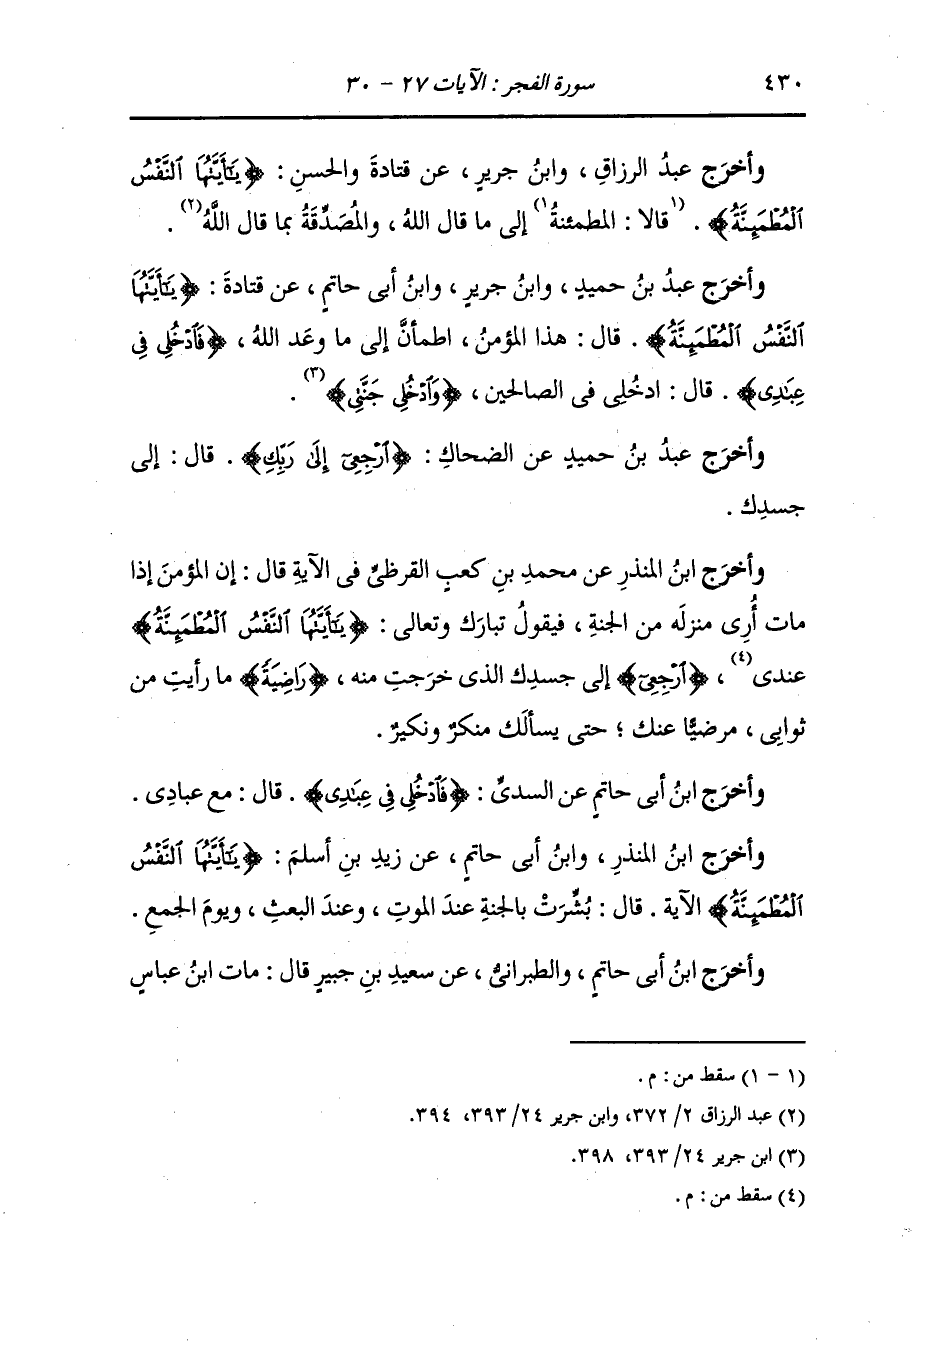 ٤٣٠ سورة الفجر : الآيات ٢٧ - ٣٠
وأخرَج عبدُ الرزاقِ ، وابنُ جريرٍ ، عن قتادةَ والحسنِ : ﴿يَٰٓأَيَّتُهَا ٱلنَّفۡسُ
ٱلۡمُطۡمَئِنَّةُ﴾ . (١قالا : المطمئنةُ١) إلى ما قال اللهُ ، والمُصَدِّقَةُ بما قال اللَّهُ(٢) .
وأخرَج عبدُ بنُ حميدٍ ، وابنُ جريرٍ ، وابنُ أبى حاتمٍ ، عن قتادةَ : ﴿يَٰٓأَيَّتُهَا
ٱلنَّفۡسُ ٱلۡمُطۡمَئِنَّةُ﴾ . قال : هذا المؤمنُ ، اطمأنَّ إلى ما وعَد اللهُ ، ﴿فَٱدۡخُلِى فِى
عِبَٰدِى﴾ . قال : ادخُلِى فى الصالحين ، ﴿وَٱدۡخُلِى جَنَّتِى﴾(٣) .
وأخرَج عبدُ بنُ حميدٍ عن الضحاكِ : ﴿ٱرۡجِعِىٓ إِلَىٰ رَبِّكِ﴾ . قال : إلى
جسدِك .
وأخرَج ابنُ المنذرِ عن محمدِ بنِ كعبٍ القرظىِّ فى الآيةِ قال : إن المؤمنَ إذا
مات أُرِى منزلَه من الجنةِ ، فيقولُ تبارَك وتعالى : ﴿يَٰٓأَيَّتُهَا ٱلنَّفۡسُ ٱلۡمُطۡمَئِنَّةُ﴾
عندى(٤) ، ﴿ٱرۡجِعِىٓ﴾ إلى جسدِك الذى خرَجتِ منه ، ﴿رَاضِيَةً﴾ ما رأيتِ من
ثوابِى ، مرضيًّا عنك ؛ حتى يسألَك منكرٌ ونكيرٌ .
وأخرَج ابنُ أبى حاتمٍ عن السدىِّ : ﴿فَٱدۡخُلِى فِى عِبَٰدِى﴾ . قال : مع عبادِى .
وأخرَج ابنُ المنذرِ ، وابنُ أبى حاتمٍ ، عن زيدِ بنِ أسلمَ : ﴿يَٰٓأَيَّتُهَا ٱلنَّفۡسُ
ٱلۡمُطۡمَئِنَّةُ﴾ الآية . قال : بُشِّرَتْ بالجنةِ عندَ الموتِ ، وعندَ البعثِ ، ويومَ الجمعِ .
وأخرَج ابنُ أبى حاتمٍ ، والطبرانىُّ ، عن سعيدِ بنِ جبيرٍ قال : مات ابنُ عباسٍ
(١ - ١) سقط من : م .
(٢) عبد الرزاق ٢/ ٣٧٢، وابن جرير ٢٤/ ٣٩٣، ٣٩٤.
(٣) ابن جرير ٢٤/ ٣٩٣، ٣٩٨.
(٤) سقط من : م .